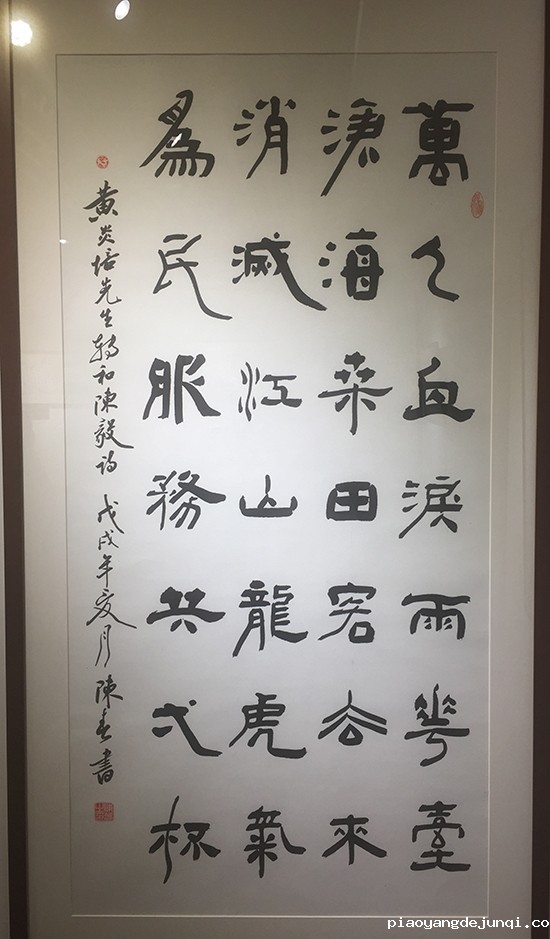 萬人血淚雨花臺
滄海桑田客去來
消滅江山龍虎氣
爲民服務共弌杯
黃炎培先生轉和陳毅詩 戊戌年夏月 陳書
piaoyangdejunqi.co